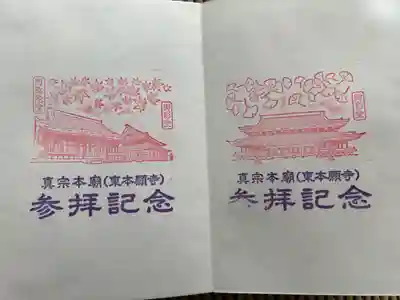 真宗本廟(東本願寺)
参拝記念
御影堂
真宗本廟(東本願寺)
参拝記念